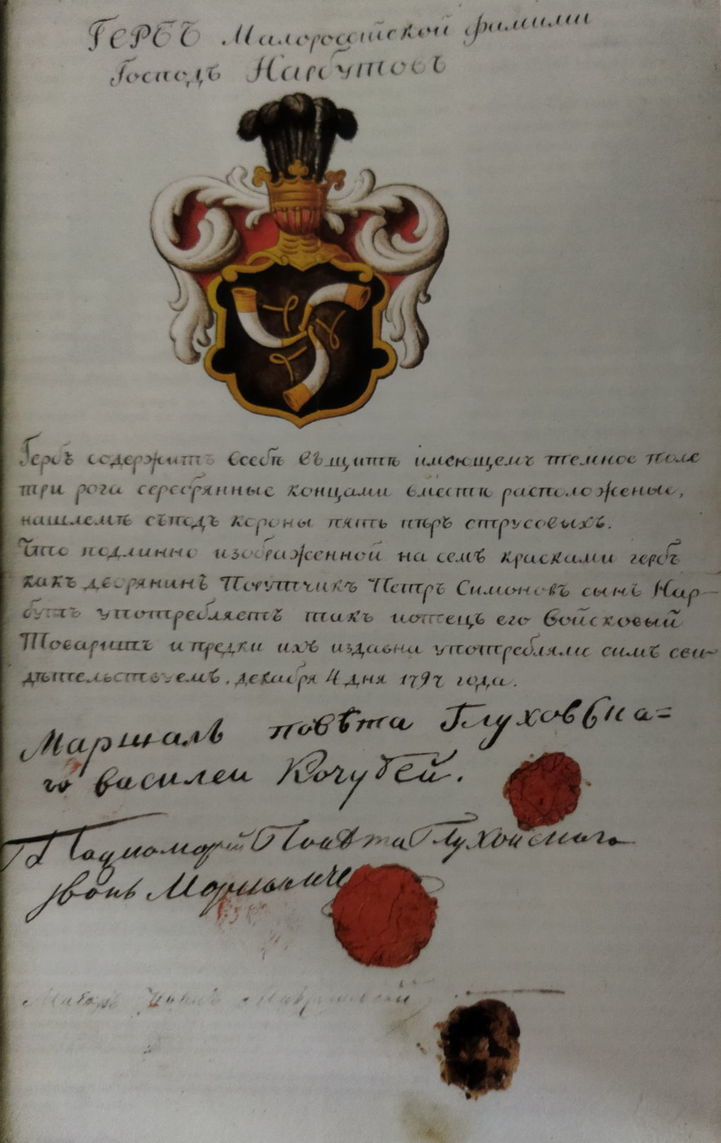 ГЕРБЪ Малороссійской фамиліи
Господъ Нарбутовъ
Гербъ содержитъ всебѣ въщитѣ имеющемъ темное поле
три рога серебрянные концами вместѣ расположеные,
нашлемѣ съподъ короны пять пѣръ струсовыхъ.
Что подлинно изображенной на семъ красками гербъ
какъ дворянинъ Порутчикъ Петръ Симоновъ сынъ Нар-
бутъ употребляетъ такъ иотецъ его Войсковый
Товаришъ и предки ихъ издавна употребляли симъ сви-
дѣтельствуемъ. декабря 4 дня 179 года.
Маршалъ повѣта Глуховскa=
го василеи Кочубей.
Повѣта Глуховскаго